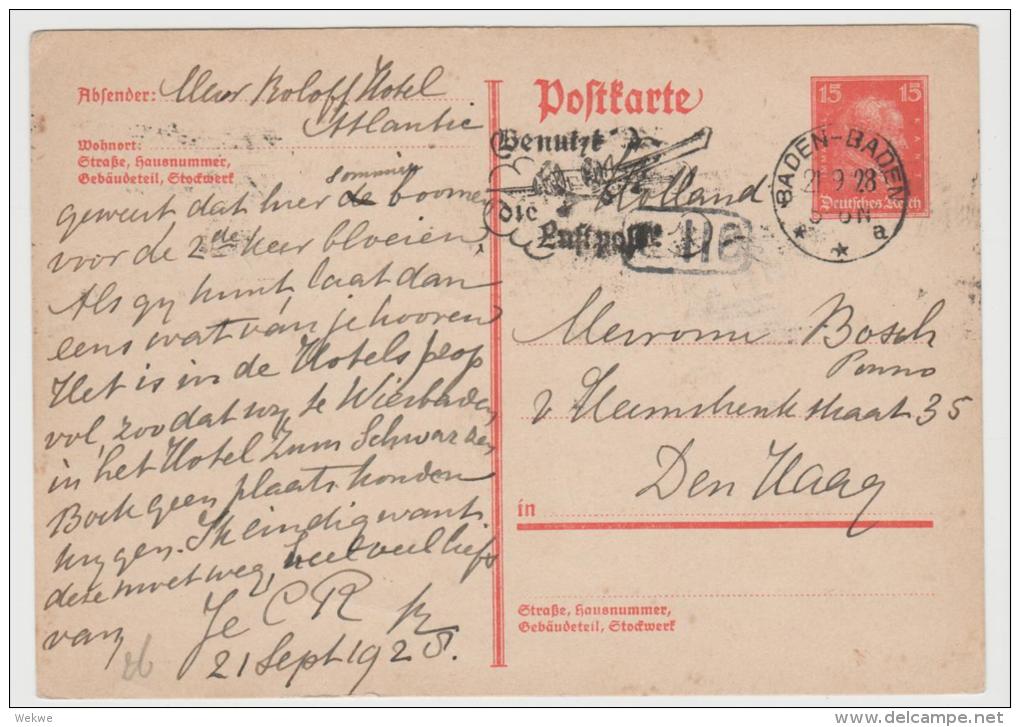 Absender: Mevr Roloff Hotel
Atlantic
Wohnort:
Straße, Hausnummer,
Gebäudeteil, Stockwerk
geweest dat hier sommige boomen
voor de 2de keer bloeien
Als gy kunt, laat dan
eens wat van je hooren
Het is in de Hotels prop
vol, zoodat wy te Wiesbaden
in het Hotel Zum Schwarzen
Bock geen plaats konden
krygen. Ik eindig want
deze moet weg, heel veel liefs
van Je C R
21 Sept 1928.
Postkarte
Benutzt
die
Luftpost
Holland
116
15 15
KANT
Deutsches Reich
BADEN-BADEN
21 9 28
* * a
Mevrouw Bosch
35
Den Haag
in
Straße, Hausnummer,
Gebäudeteil, Stockwerk
Wekwe
delcampe.net